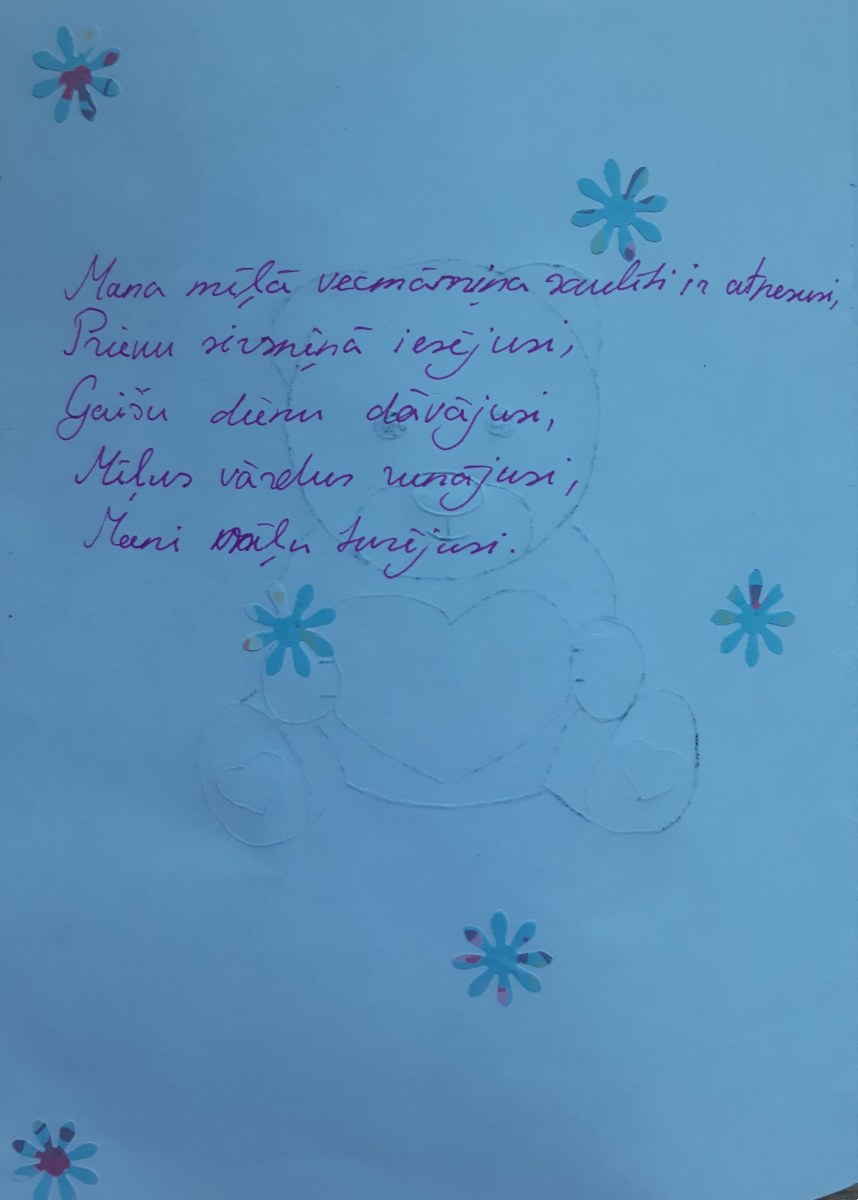 Mana mīļā vecmāmiņa saulīti ir atnesusi,
Prieku sirsniņā iesējusi,
Gaišu dienu dāvājusi,
Mīļus vārdus runājusi,
Mani mīļu turējusi.